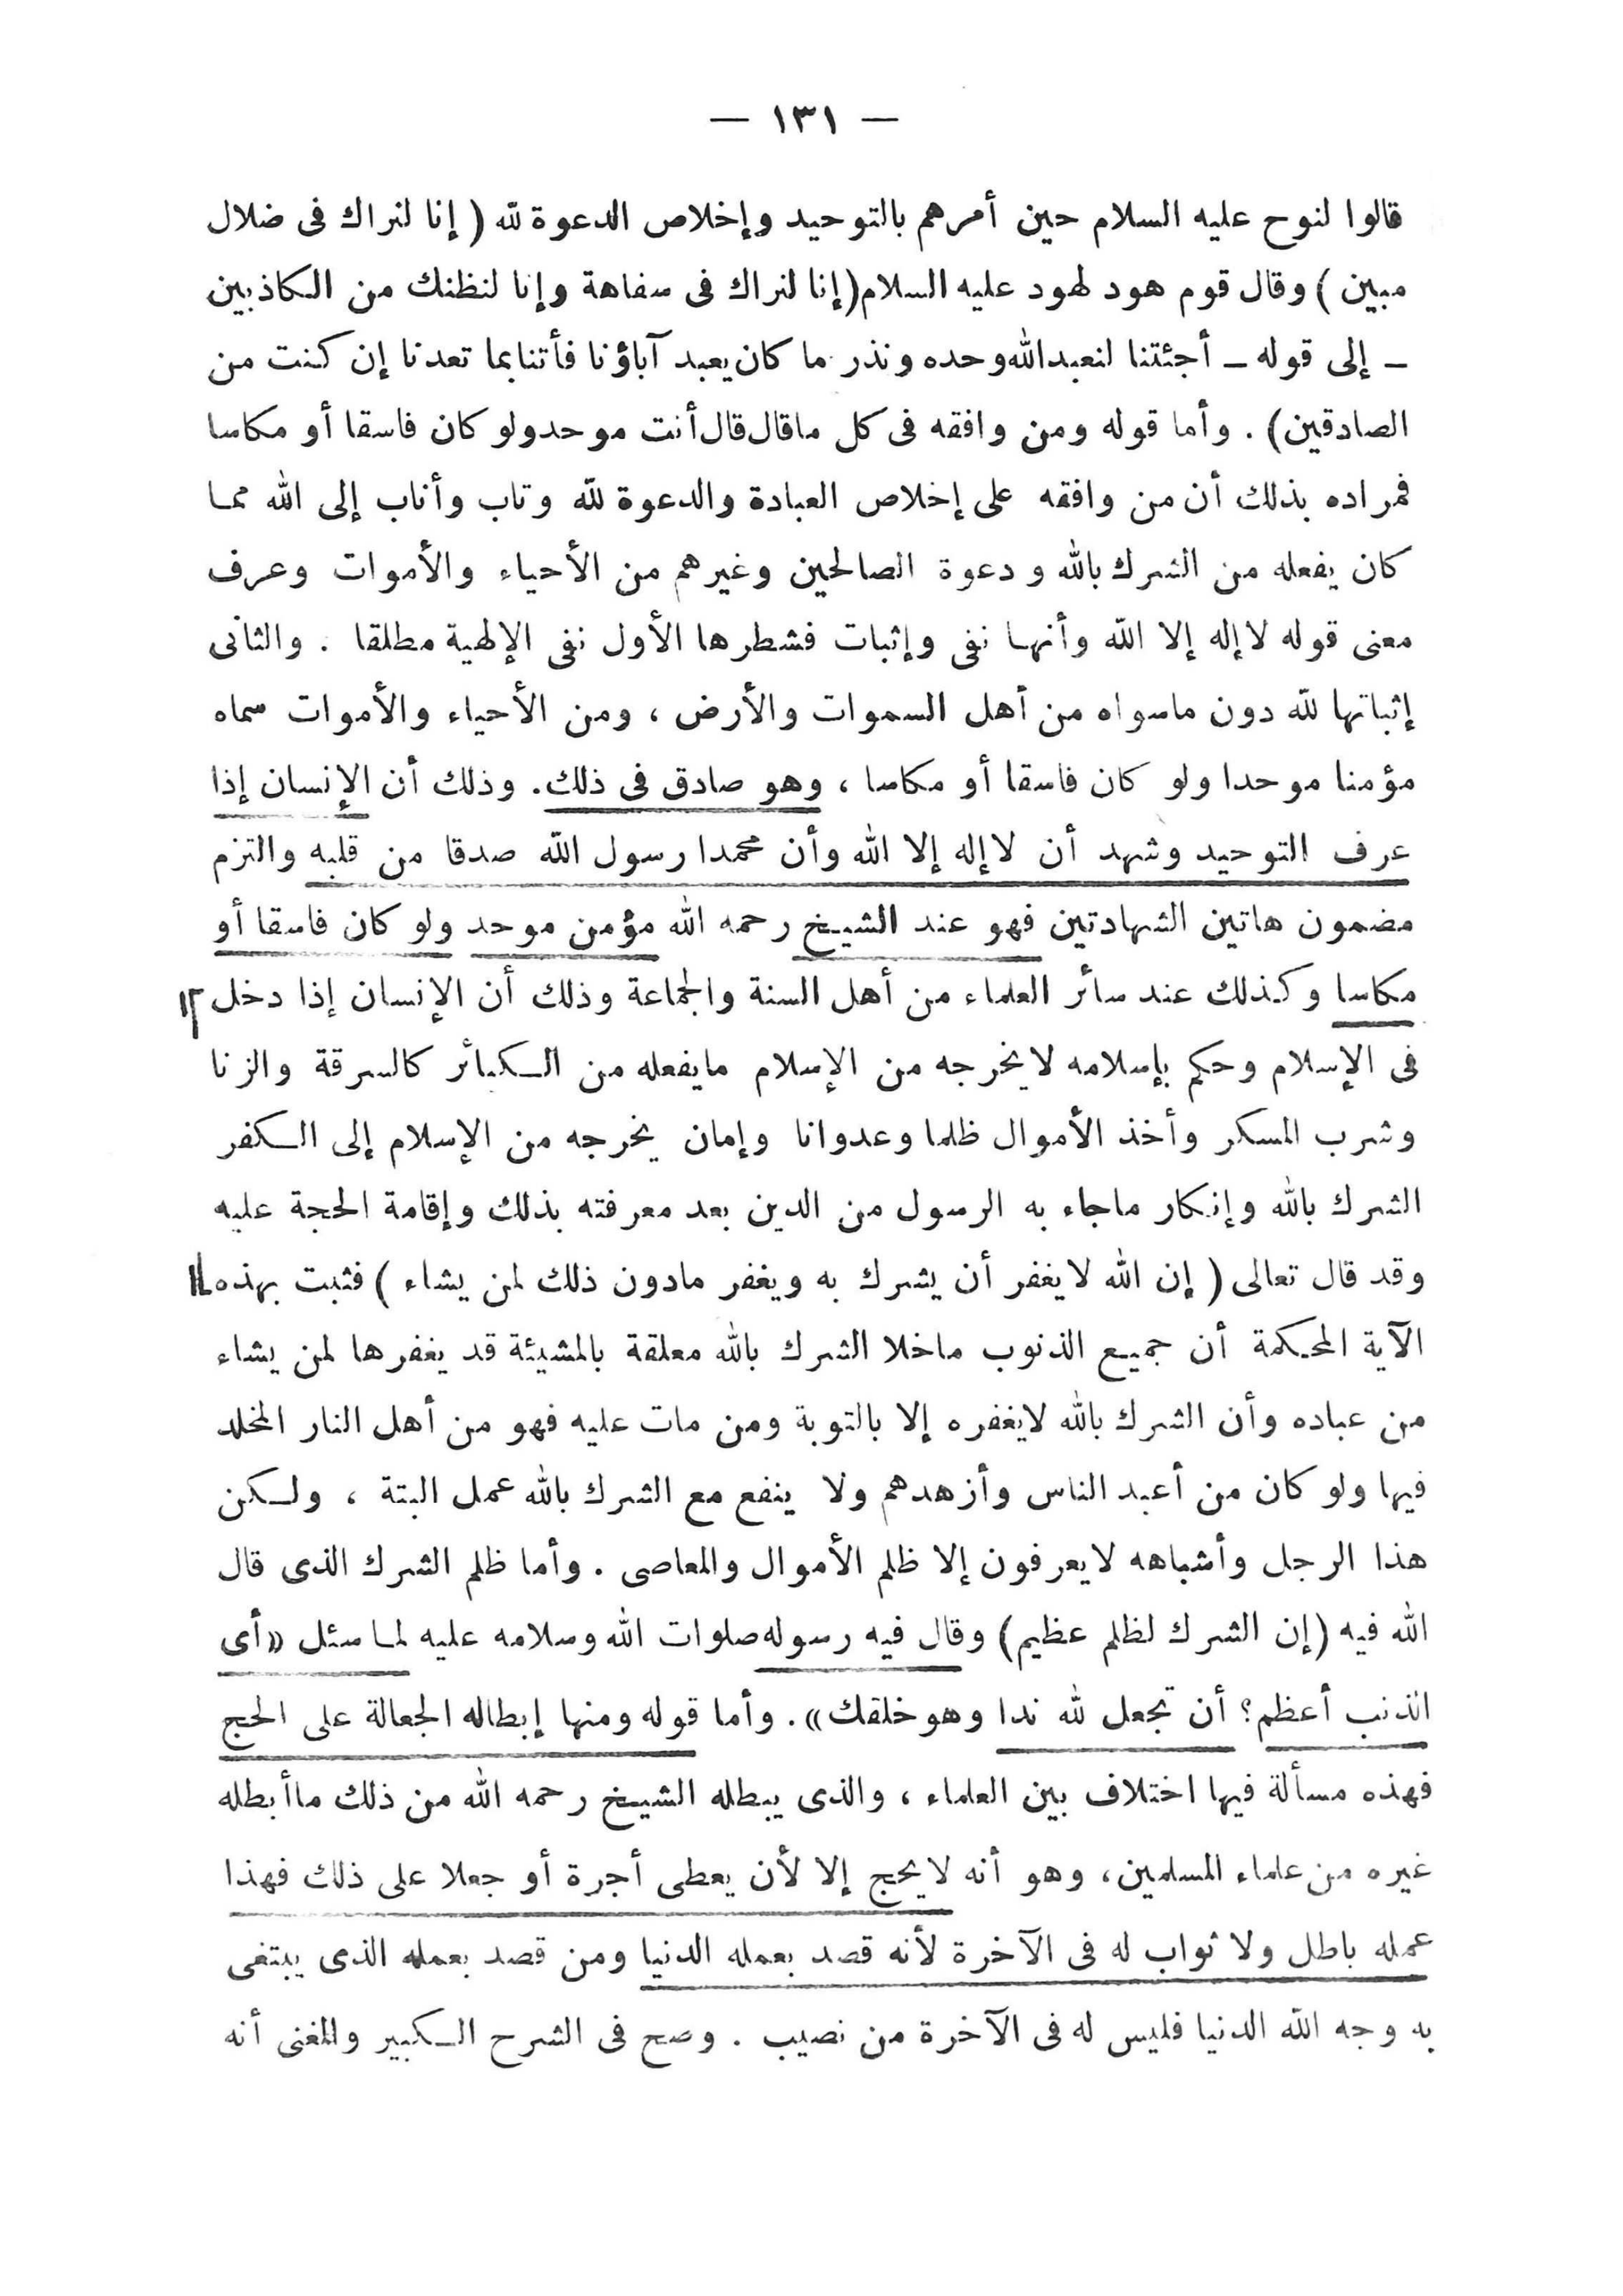 — ١٣١ —
قالوا لنوح عليه السلام حين أمرهم بالتوحيد وإخلاص الدعوة لله ( إنا لنراك فى ضلال
مبين ) وقال قوم هود لهود عليه السلام (إنا لنراك فى سفاهة وإنا لنظنك من الكاذبين
– إلى قوله – أجئتنا لنعبد الله وحده ونذر ما كان يعبد آباؤنا فأتنا بما تعدنا إن كنت من
الصادقين) . وأما قوله ومن وافقه فى كل ما قال قال أنت موحد ولو كان فاسقا أو مكاسا
فمراده بذلك أن من وافقه على إخلاص العبادة والدعوة لله وتاب وأناب إلى الله مما
كان يفعله من الشرك بالله ودعوة الصالحين وغيرهم من الأحياء والأموات وعرف
معنى قوله لا إله إلا الله وأنها نفى وإثبات فشطرها الأول نفى الإلهية مطلقا . والثانى
إثباتها لله دون ماسواه من أهل السموات والأرض ، ومن الأحياء والأموات سماه
مؤمنا موحدا ولو كان فاسقا أو مكاسا ، وهو صادق فى ذلك. وذلك أن الإنسان إذا
عرف التوحيد وشهد أن لا إله إلا الله وأن محمدا رسول الله صدقا من قلبه والتزم
مضمون هاتين الشهادتين فهو عند الشيخ رحمه الله مؤمن موحد ولو كان فاسقا أو
مكاسا وكذلك عند سائر العلماء من أهل السنة والجماعة وذلك أن الإنسان إذا دخل
فى الإسلام وحكم بإسلامه لا يخرجه من الإسلام ما يفعله من الكبائر كالسرقة والزنا
وشرب المسكر وأخذ الأموال ظلما وعدوانا وإمان يخرجه من الإسلام إلى الكفر
الشرك بالله وإنكار ماجاء به الرسول من الدين بعد معرفته بذلك وإقامة الحجة عليه
وقد قال تعالى ( إن الله لا يغفر أن يشرك به ويغفر مادون ذلك لمن يشاء ) فثبت بهذه
الآية المحكمة أن جميع الذنوب ماخلا الشرك بالله معلقة بالمشيئة قد يغفرها لمن يشاء
من عباده وأن الشرك بالله لايغفره إلا بالتوبة ومن مات عليه فهو من أهل النار المخلد
فيها ولو كان من أعبد الناس وأزهدهم ولا ينفع مع الشرك بالله عمل البتة ، ولكن
هذا الرجل وأشباهه لايعرفون إلا ظلم الأموال والمعاصى . وأما ظلم الشرك الذى قال
الله فيه (إن الشرك لظلم عظيم) وقال فيه رسوله صلوات الله وسلامه عليه لما سئل «أى
الذنب أعظم؟ أن تجعل لله ندا وهو خلقك» . وأما قوله ومنها إبطاله الجعالة على الحج
فهذه مسألة فيها اختلاف بين العلماء ، والذى يبطله الشيخ رحمه الله من ذلك ما أبطله
غيره من علماء المسلمين، وهو أنه لا يحج إلا لأن يعطى أجرة أو جعلا على ذلك فهذا
عمله باطل ولا ثواب له فى الآخرة لأنه قصد بعمله الدنيا ومن قصد بعمله الذى يبتغى
به وجه الله الدنيا فليس له فى الآخرة من نصيب . وصح فى الشرح الكبير والمغنى أنه